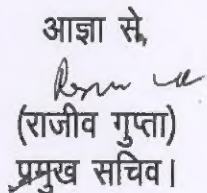 आज्ञा से,
(राजीव गुप्ता)
प्रमुख सचिव।